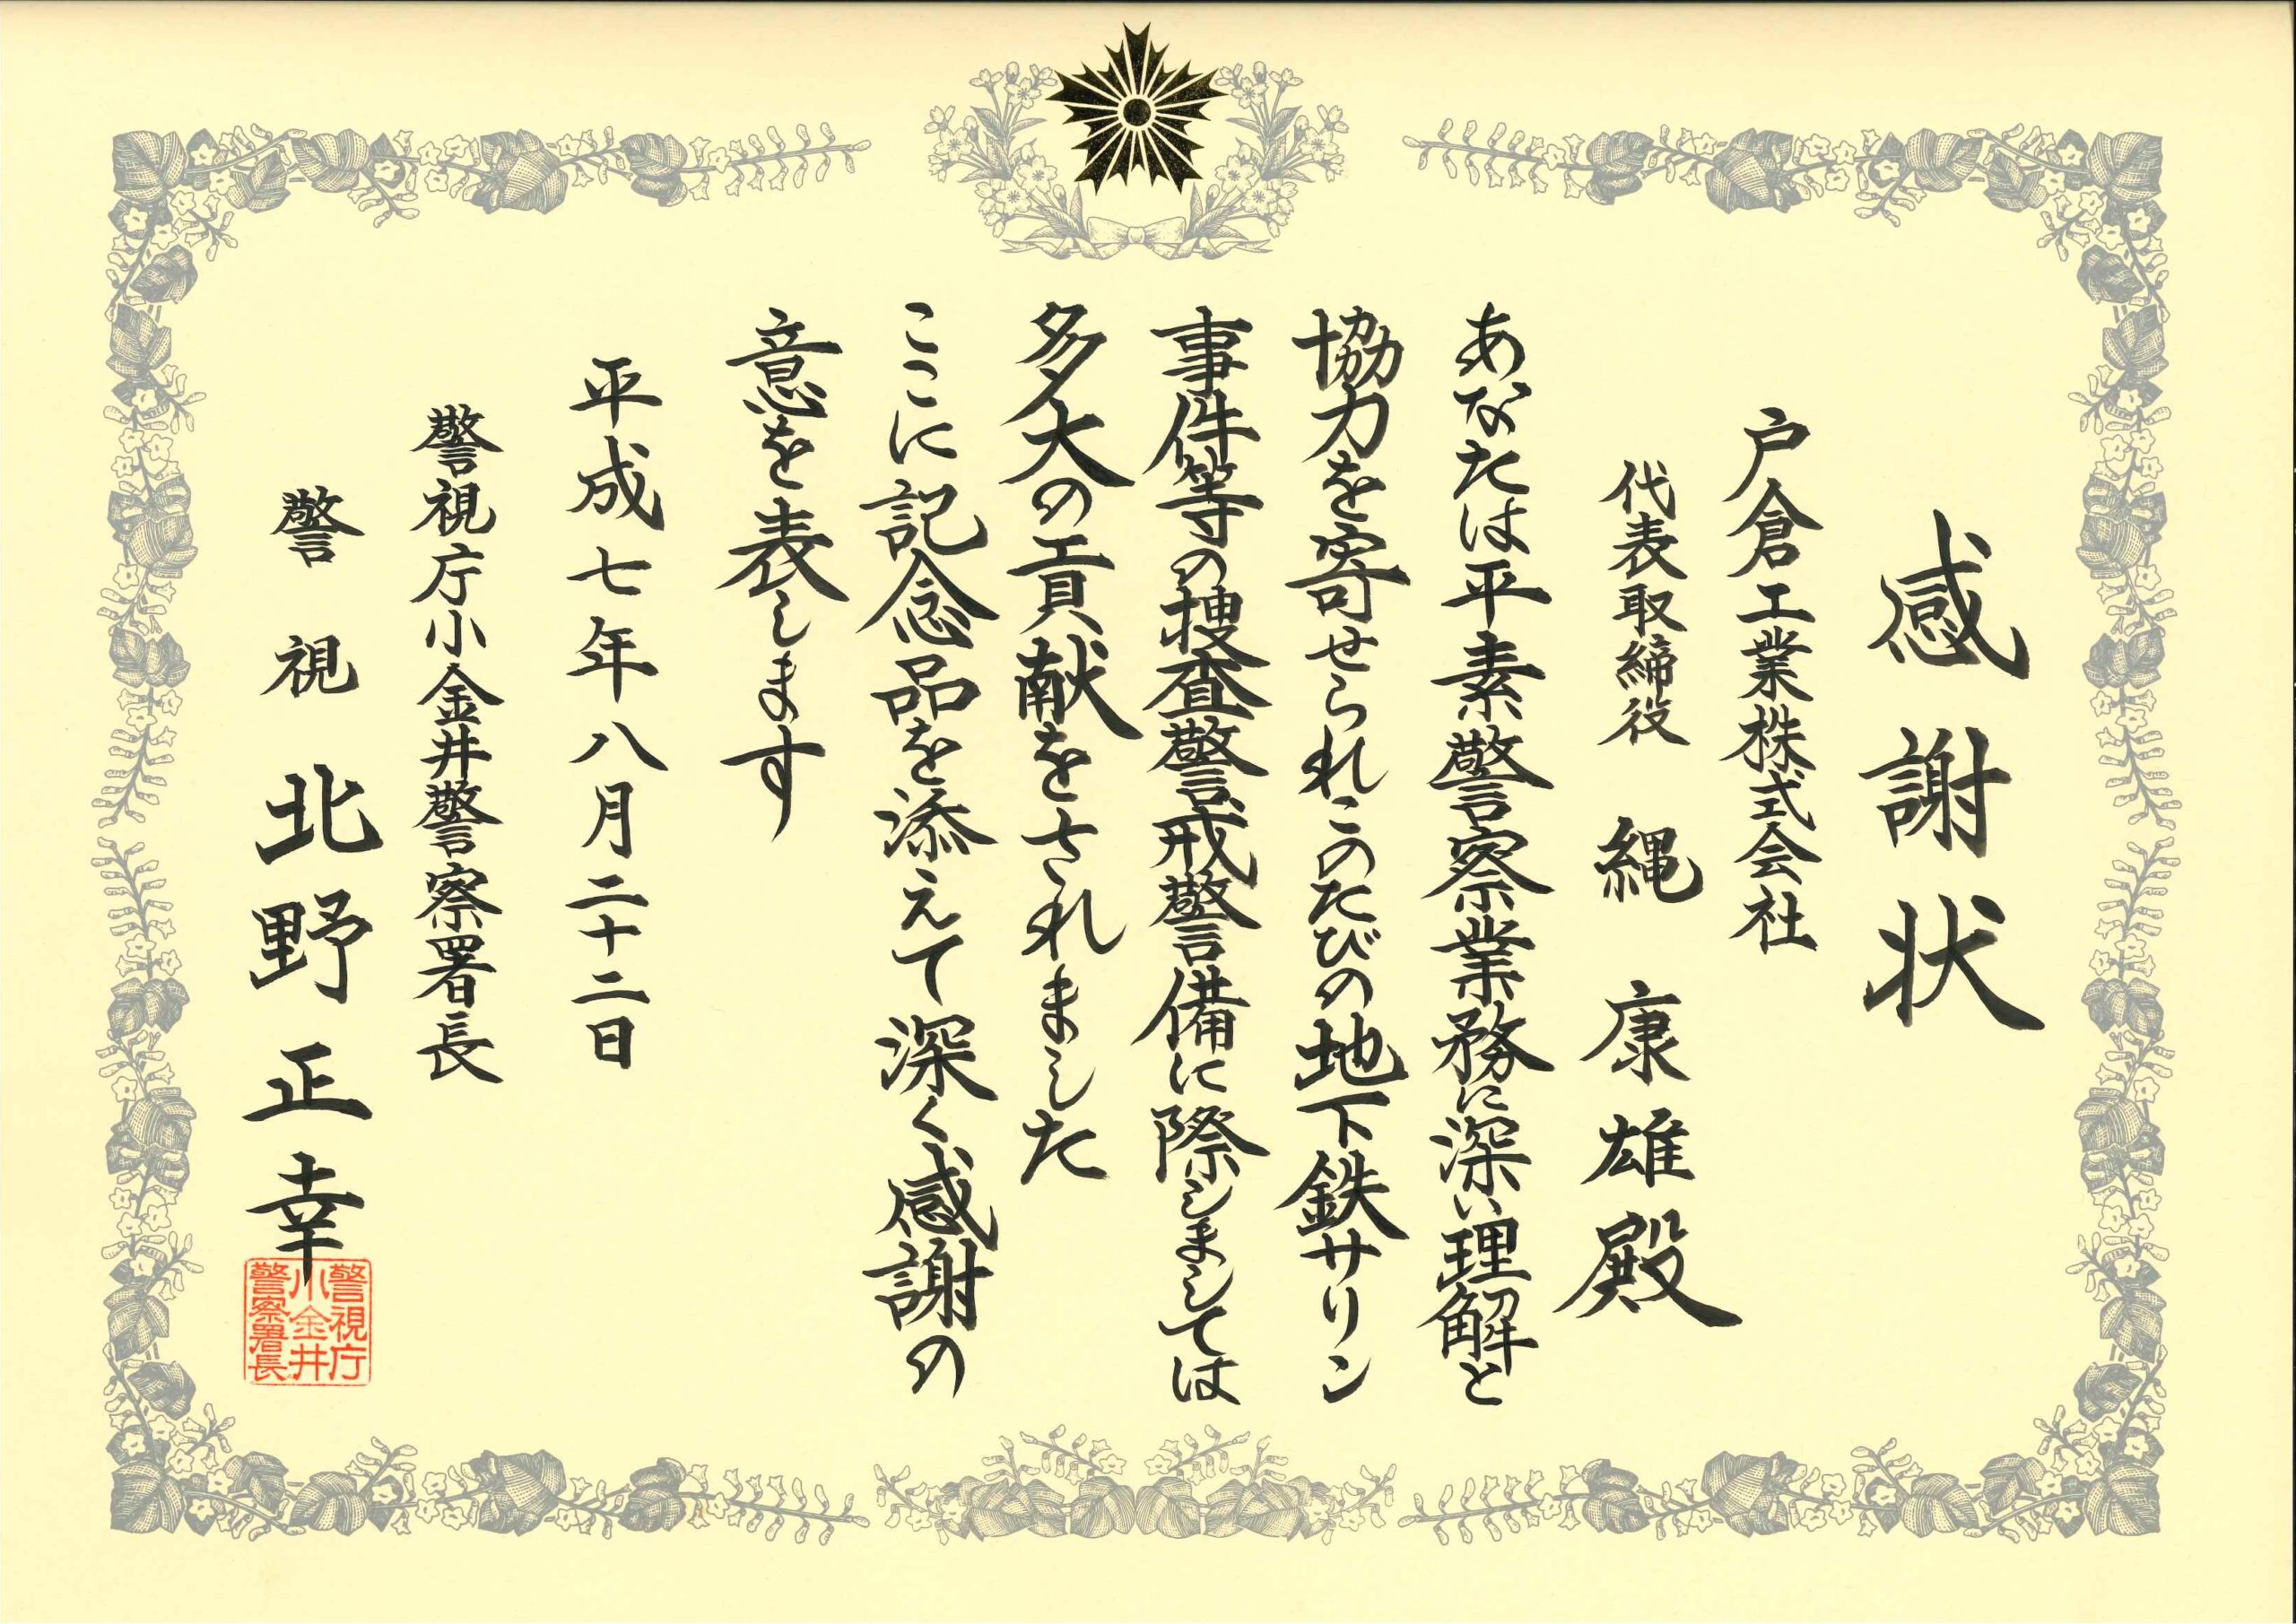 感謝状
戸倉工業株式会社
代表取締役 縄 康雄殿
あなたは平素警察業務に深い理解と
協力を寄せられこのたびの地下鉄サリン
事件等の捜査警戒警備に際しましては
多大の貢献をされました
ここに記念品を添えて深く感謝の
意を表します
平成七年八月二十二日
警視庁小金井警察署長
警視 北野正幸
警視庁
小金井
警察署長